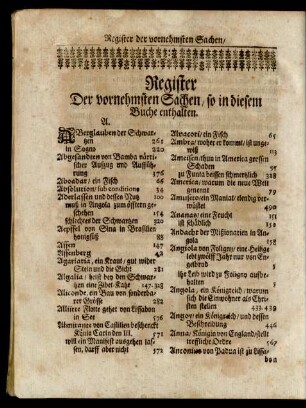 Register der vornehmsten Sachen/
Register
Der vornehmsten Sachen, so in diesem
Buche enthalten.
A.
Aberglauben der Schwar-
tzen 261
in Sogno 221
Abgesandten von Bamba närri-
scher Aufzug und Auffüh-
rung 176
Aboadar, ein Fisch 66
Absolution/ sub conditione 34
Aderlassen und dessen Noth
muß in Angola zum öfftern ge-
schehen 154
schlechtes der Schwartzen 320
Aepffel von Sina in Brasilien
honigsüß 88
Affen 147
Affenberg 43
Agariaria, ein Kraut/ gut wider
Stein und die Gicht 281
Algalia, heist bey den Schwar-
tzen eine Zibet-Katze 147. 318
Aliconde, ein Bau von sonderba-
rer Grösse 282
Alliirte Flotte gehet von Lissabon
in See 576
Almirante von Castilien beschenckt
König Carln den III.
will ein Manifest ausgehen las-
sen, darff aber nicht 572
Alvacori/ ein Fisch 65
Ambra/ woher er kommt/ ist unge-
wiß
Ameisen/ thun in America grossen
Schaden 95
zu Funta beissen schmertzlich 328
America/ warum die neue Welt
genennt
490
Ananas/ eine Frucht 151
ist schädlich
Andacht der Missionarien in An-
gola
Angiola von Foligny/ eine Heilige
lebt zwölff Jahr nur von En-
gelbrod
ihr Leib wird zu Foligny aufbe-
halten
Angola/ ein Königreich/ warum
sich die Einwohner als Chri-
sten stellen 433. 439
Angoy/ ein Königreich/ und dessen
Beschreibung 446
Anna/ Königin von England/ stellt
treffliche Ordre 567
Antonius von Padua ist zu Lissa-
bon